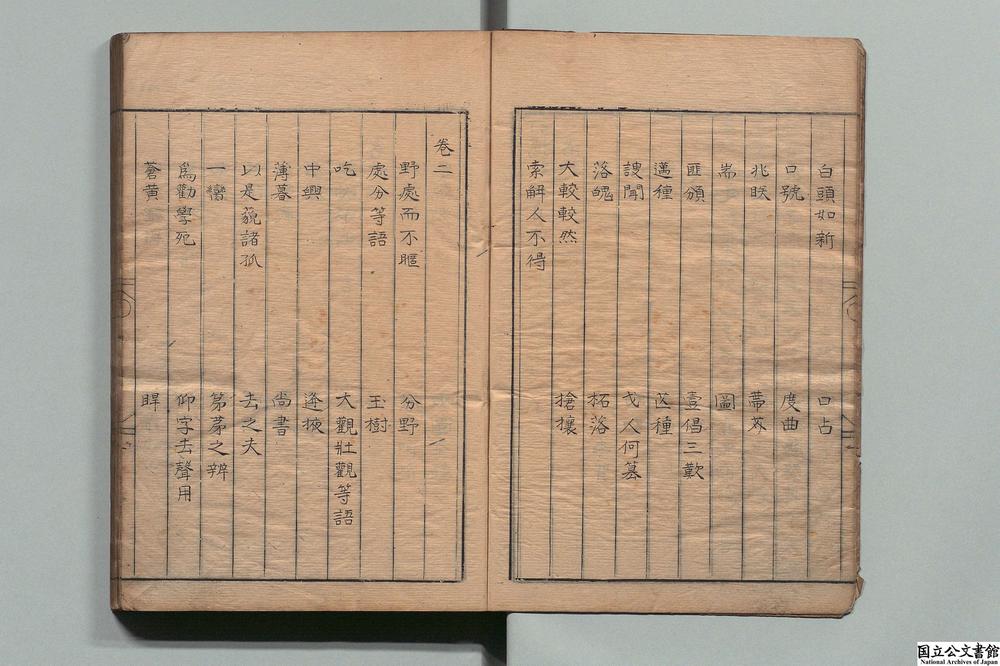 白頭如新　口占
口號　度曲
兆朕　蔕芥
耑　圖
匪頒　壹倡三歎
邁種　芯種
謏聞　弋人何篡
落魄　柘落
大較較然　搶攘
索解人不得
卷二
野處而不暱　分野
處分等語　玉樹
吃　大觀壯觀等語
中興　逢掖
薄暮　尚書
以是藐諸孤　去之夫
一巒　第苐之辨
爲勸學死　仰字去聲用
蒼黃　睅
国立公文書館
National Archives of Japan